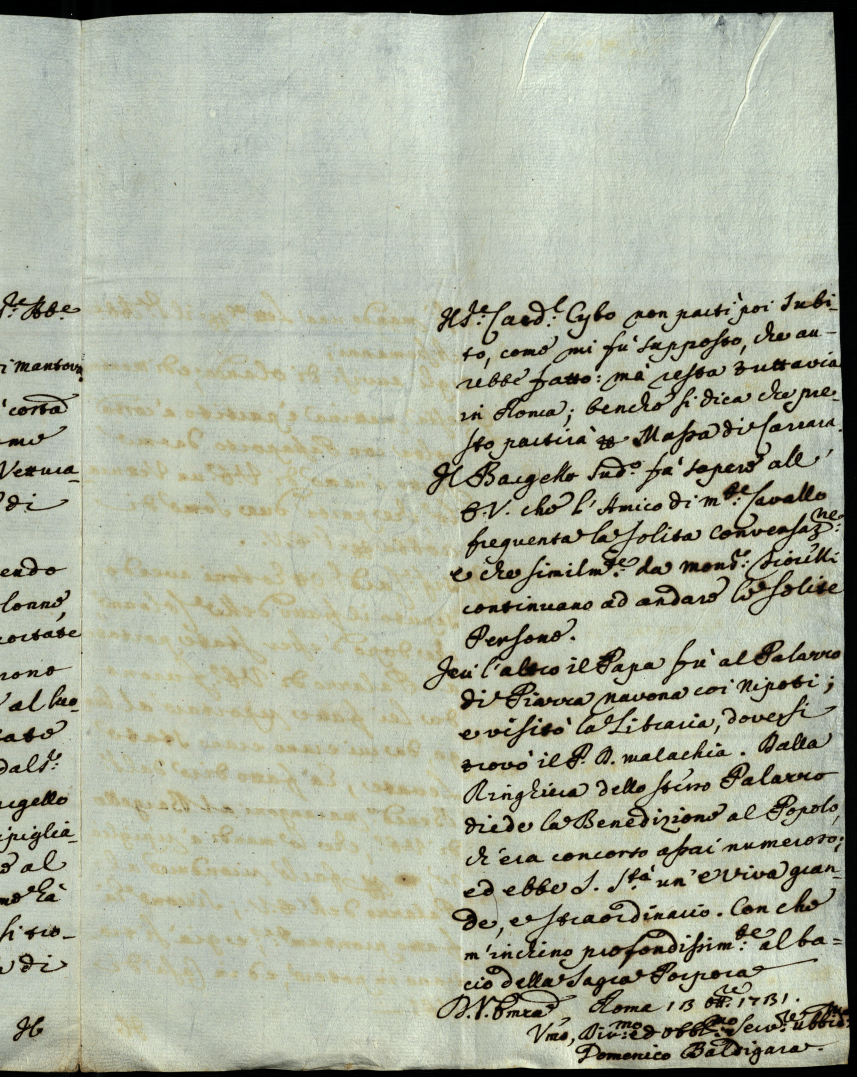 S.re Abe
i mantova
à corta
ome
Vettura
di
endo
lonne,
portate
rono
al luo-
tate
dal S.r
argello
ipiglia-
e al
me hà
si tro-
di
Il
Il S.re Card.l Cybo non partì poi subi-
to, come mi fù supposto, che au-
rebbe fatto: mà resta tuttavia
in Roma; benche si dica che pre-
sto partirà Massa di Carrara.
Il Bargello Sud.o fà sapere all'
E.V. che l'Amico di m.de Cavallo
frequenta la solita conversaz.ne:
e che similm.te da mons.r
continuano ad andare le solite
Persone.
Jeri l'altro il Papa fù al Palazzo
di Piazza navona coi Nipoti;
e visitò la Libraria, dove si
trovò il P. D. malachia. Dalla
Ringhiera dello stesso Palazzo
diede la Benedizione al Popolo,
ch'era concorso assai numeroso;
ed ebbe S. S.tà un' e Viva gran-
de, e straordinario. Con che
m'inchino profondissim.te al ba-
cio della Sagra Porpora
D.V. Emza Roma 13 8tt.re 1731.
Vmo, Div.mo ed obblig.mo Serv.re
Domenico Baldigara.